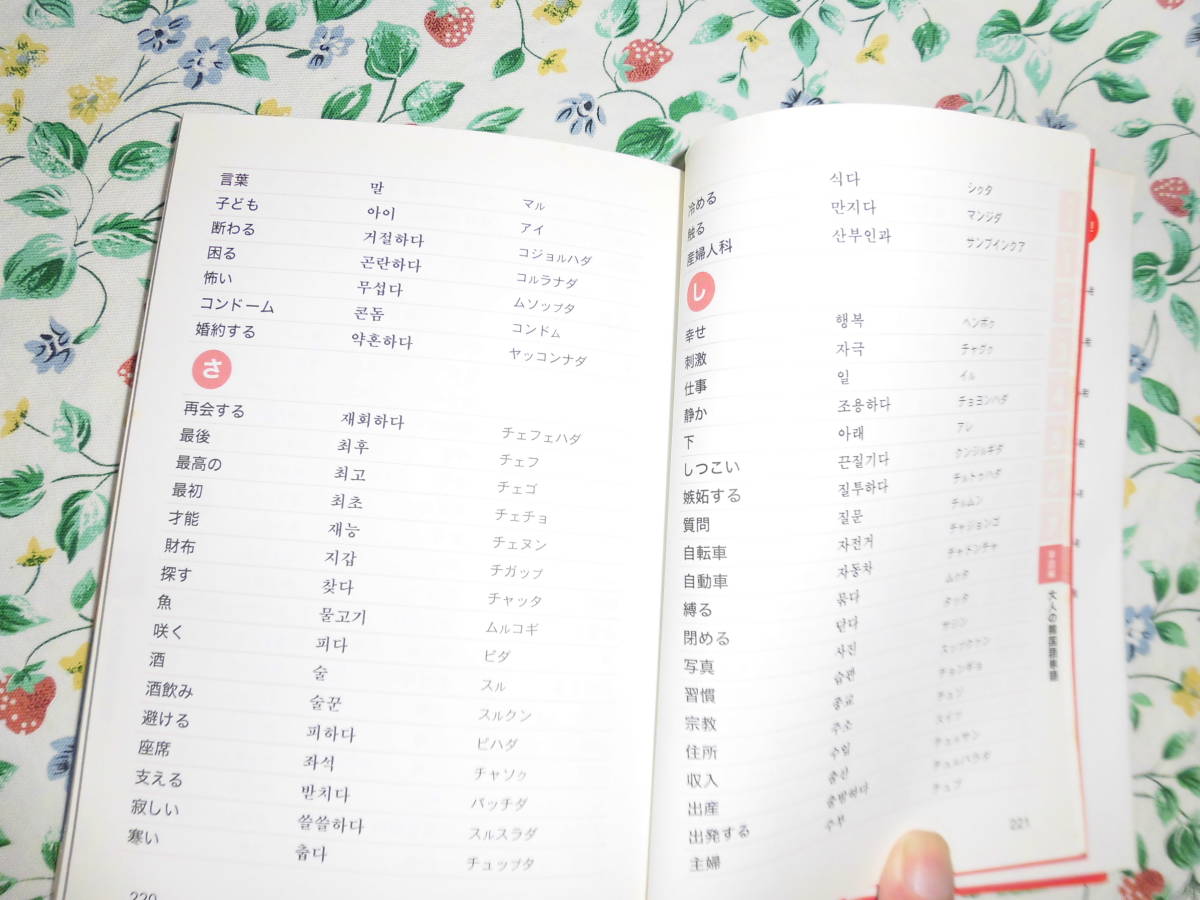 言葉 말 マル
子ども 아이 アイ
断わる 거절하다 コジョルハダ
困る 곤란하다 コルラナダ
怖い 무섭다 ムソップタ
コンドーム 콘돔 コンドム
婚約する 약혼하다 ヤッコンナダ
さ
再会する 재회하다 チェフェハダ
最後 최후 チェフ
最高の 최고 チェゴ
最初 최초 チェチョ
才能 재능 チェヌン
財布 지갑 チガップ
探す 찾다 チャッタ
魚 물고기 ムルコギ
咲く 피다 ピダ
酒 술 スル
酒飲み 술꾼 スルクン
避ける 피하다 ピハダ
座席 좌석 チャソク
支える 받치다 パッチダ
寂しい 쓸쓸하다 スルスラダ
寒い 춥다 チュップタ
220
冷める 식다 シクタ
触る 만지다 マンジダ
産婦人科 산부인과 サンブインクア
し
幸せ 행복 ヘンボク
刺激 자극 チャグク
仕事 일 イル
静か 조용하다 チョヨンハダ
下 아래 アレ
しつこい 끈질기다 クンジルギダ
嫉妬する 질투하다 チルトゥハダ
質問 질문 チルムン
自転車 자전거 チャジョンゴ
自動車 자동차 チャドンチャ
縛る 묶다 ムクタ
閉める 닫다 タッタ
写真 사진 サジン
習慣 습관 スップクァン
宗教 종교 チョンギョ
住所 주소 チュソ
収入 수입 スイプ
出産 출산 チュルサン
出発する 출발하다 チュルバラダ
主婦 주부 チュブ
221
大人の韓国語単語